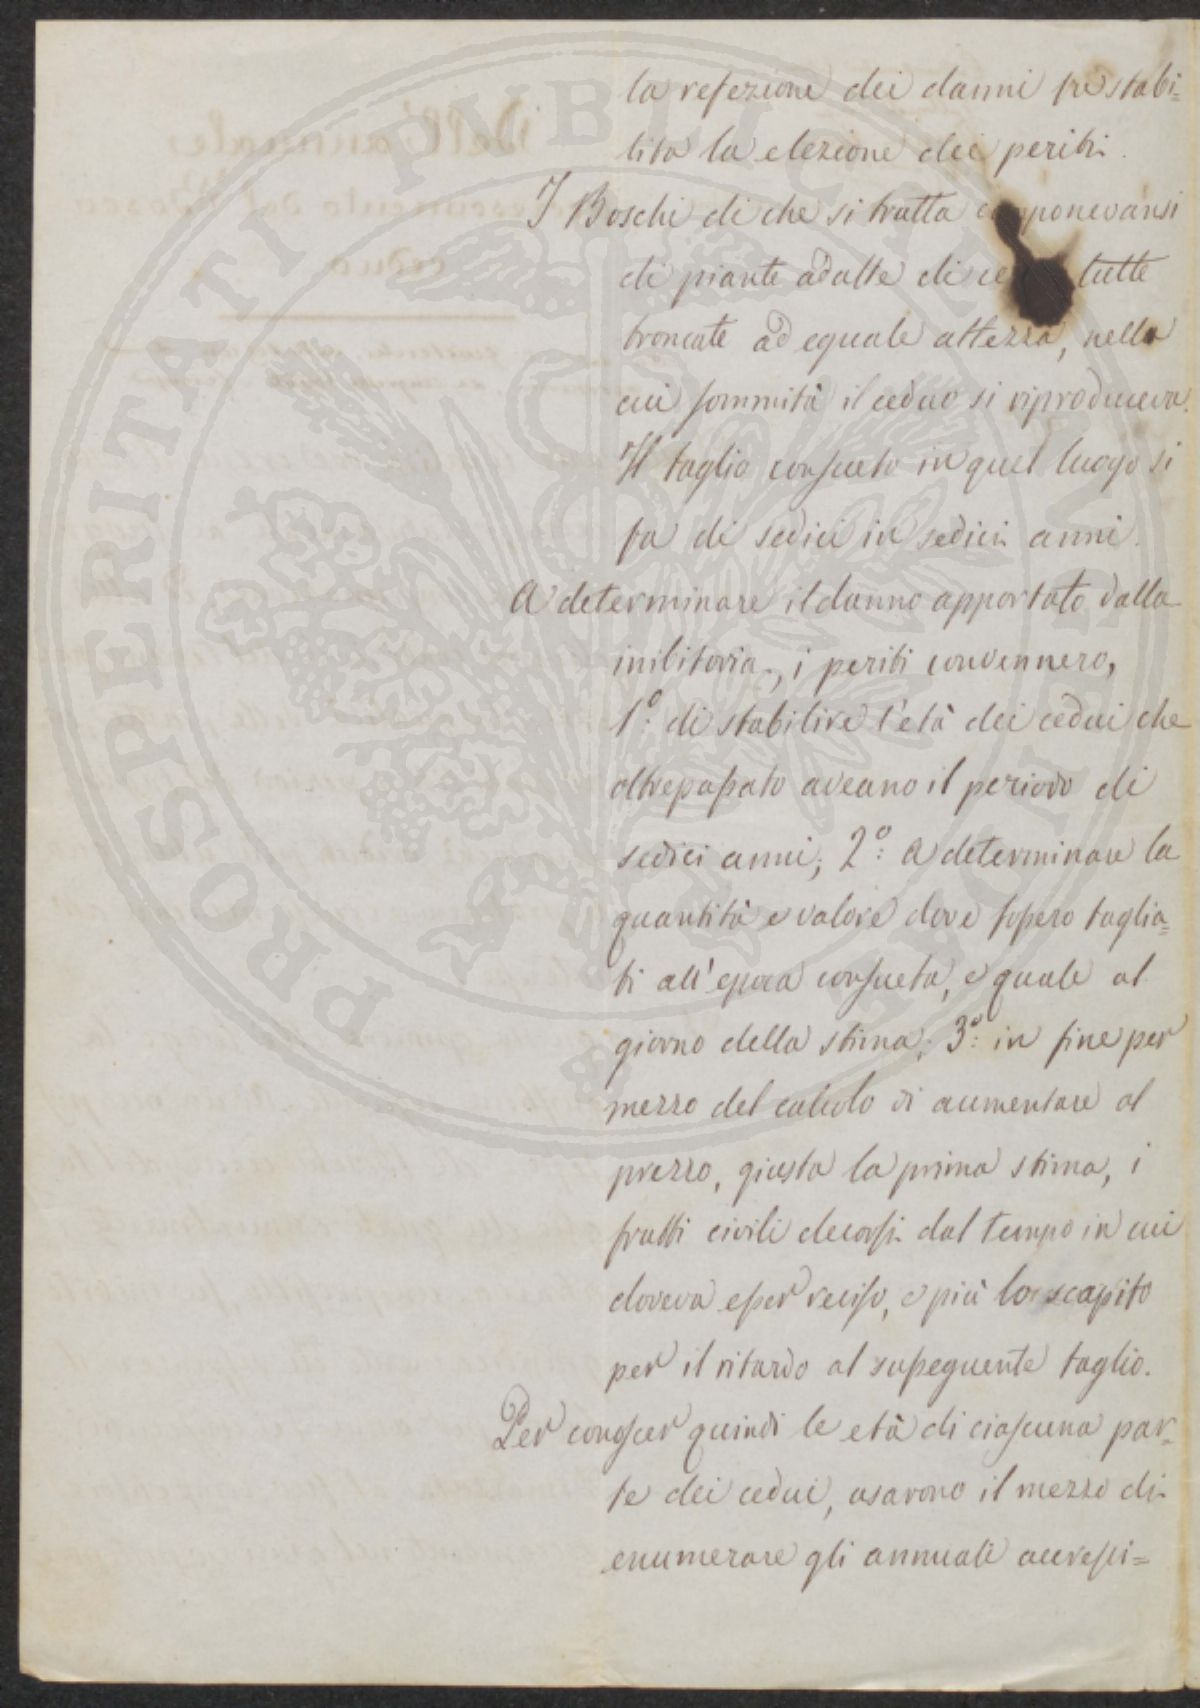 la refezione dei danni fu stabi=
lita la elezione dei periti.
I Boschi di che si tratta componevansi
di piante adalte di ce tutte
troncate ad eguale altezza, nella
cui sommità il ceduo si riproduceva.
Il taglio consueto in quel luogo si
fa di sedici in sedici anni.
A determinare il danno apportato dalla
inibitoria, i periti convennero,
1°: di stabilire l'età dei cedui che
oltrepassato aveano il periodo di
sedici anni; 2°: a determinare la
quantità e valore dove fossero taglia=
ti all'epoca consueta, e quale al
giorno della stima; 3°: in fine per
mezzo del calcolo di aumentare al
prezzo, giusta la prima stima, i
frutti civili decorsi dal tempo in cui
doveva esser reciso, e più lo scapito
per il ritardo al susseguente taglio.
Per conoscer quindi le età di ciascuna par=
te dei cedui, usarono il mezzo di
enumerare gli annuali accresci=
PROSPERITATI PVBLICAE